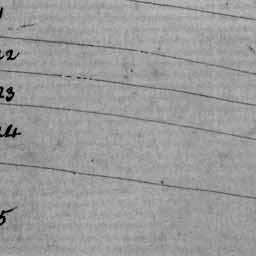 22
23
24
5